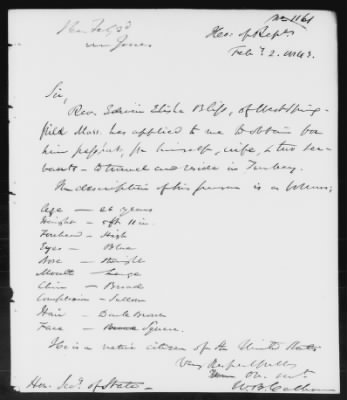 No 1161
Mr Jones
Ho. of Repts
Feb. 2. 1843.
Sir,
Rev. Edwin Elisha Bliss, of West Spring-
field Mass. has applied to me to obtain for
him passport, for himself, wife, & two ser-
vants – to travel and reside in Turkey.
The description of his person is as follows;
Age — 26 years
Height — 5ft 11 in.
Forehead — High
Eyes — Blue
Nose — Straight
Mouth — Large
Chin — Broad
Complexion — Sallow
Hair — Dark Brown
Face — Square.
He is a native citizen of the United States
Very Respectfully
Ob. svt.
W. B. Calhoun
Hon. Sec'y of State —